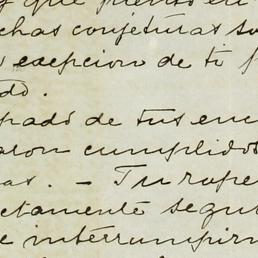 que pienso en
chas conjeturas so
excepcion de ti
do.
pado de tus enc
aron cumplidos
as. – Tu rope
ctamente segur
e interrumpir